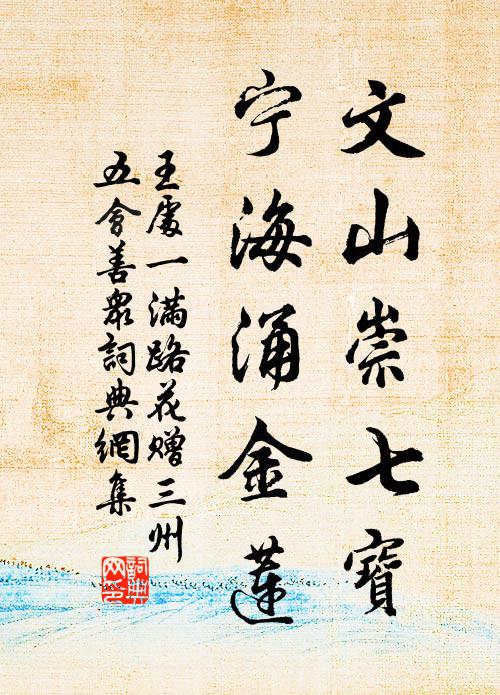 文山崇七寶
宁海涌金蓮
王處一满路花赠三州
五會善眾詞典網集
詞典网